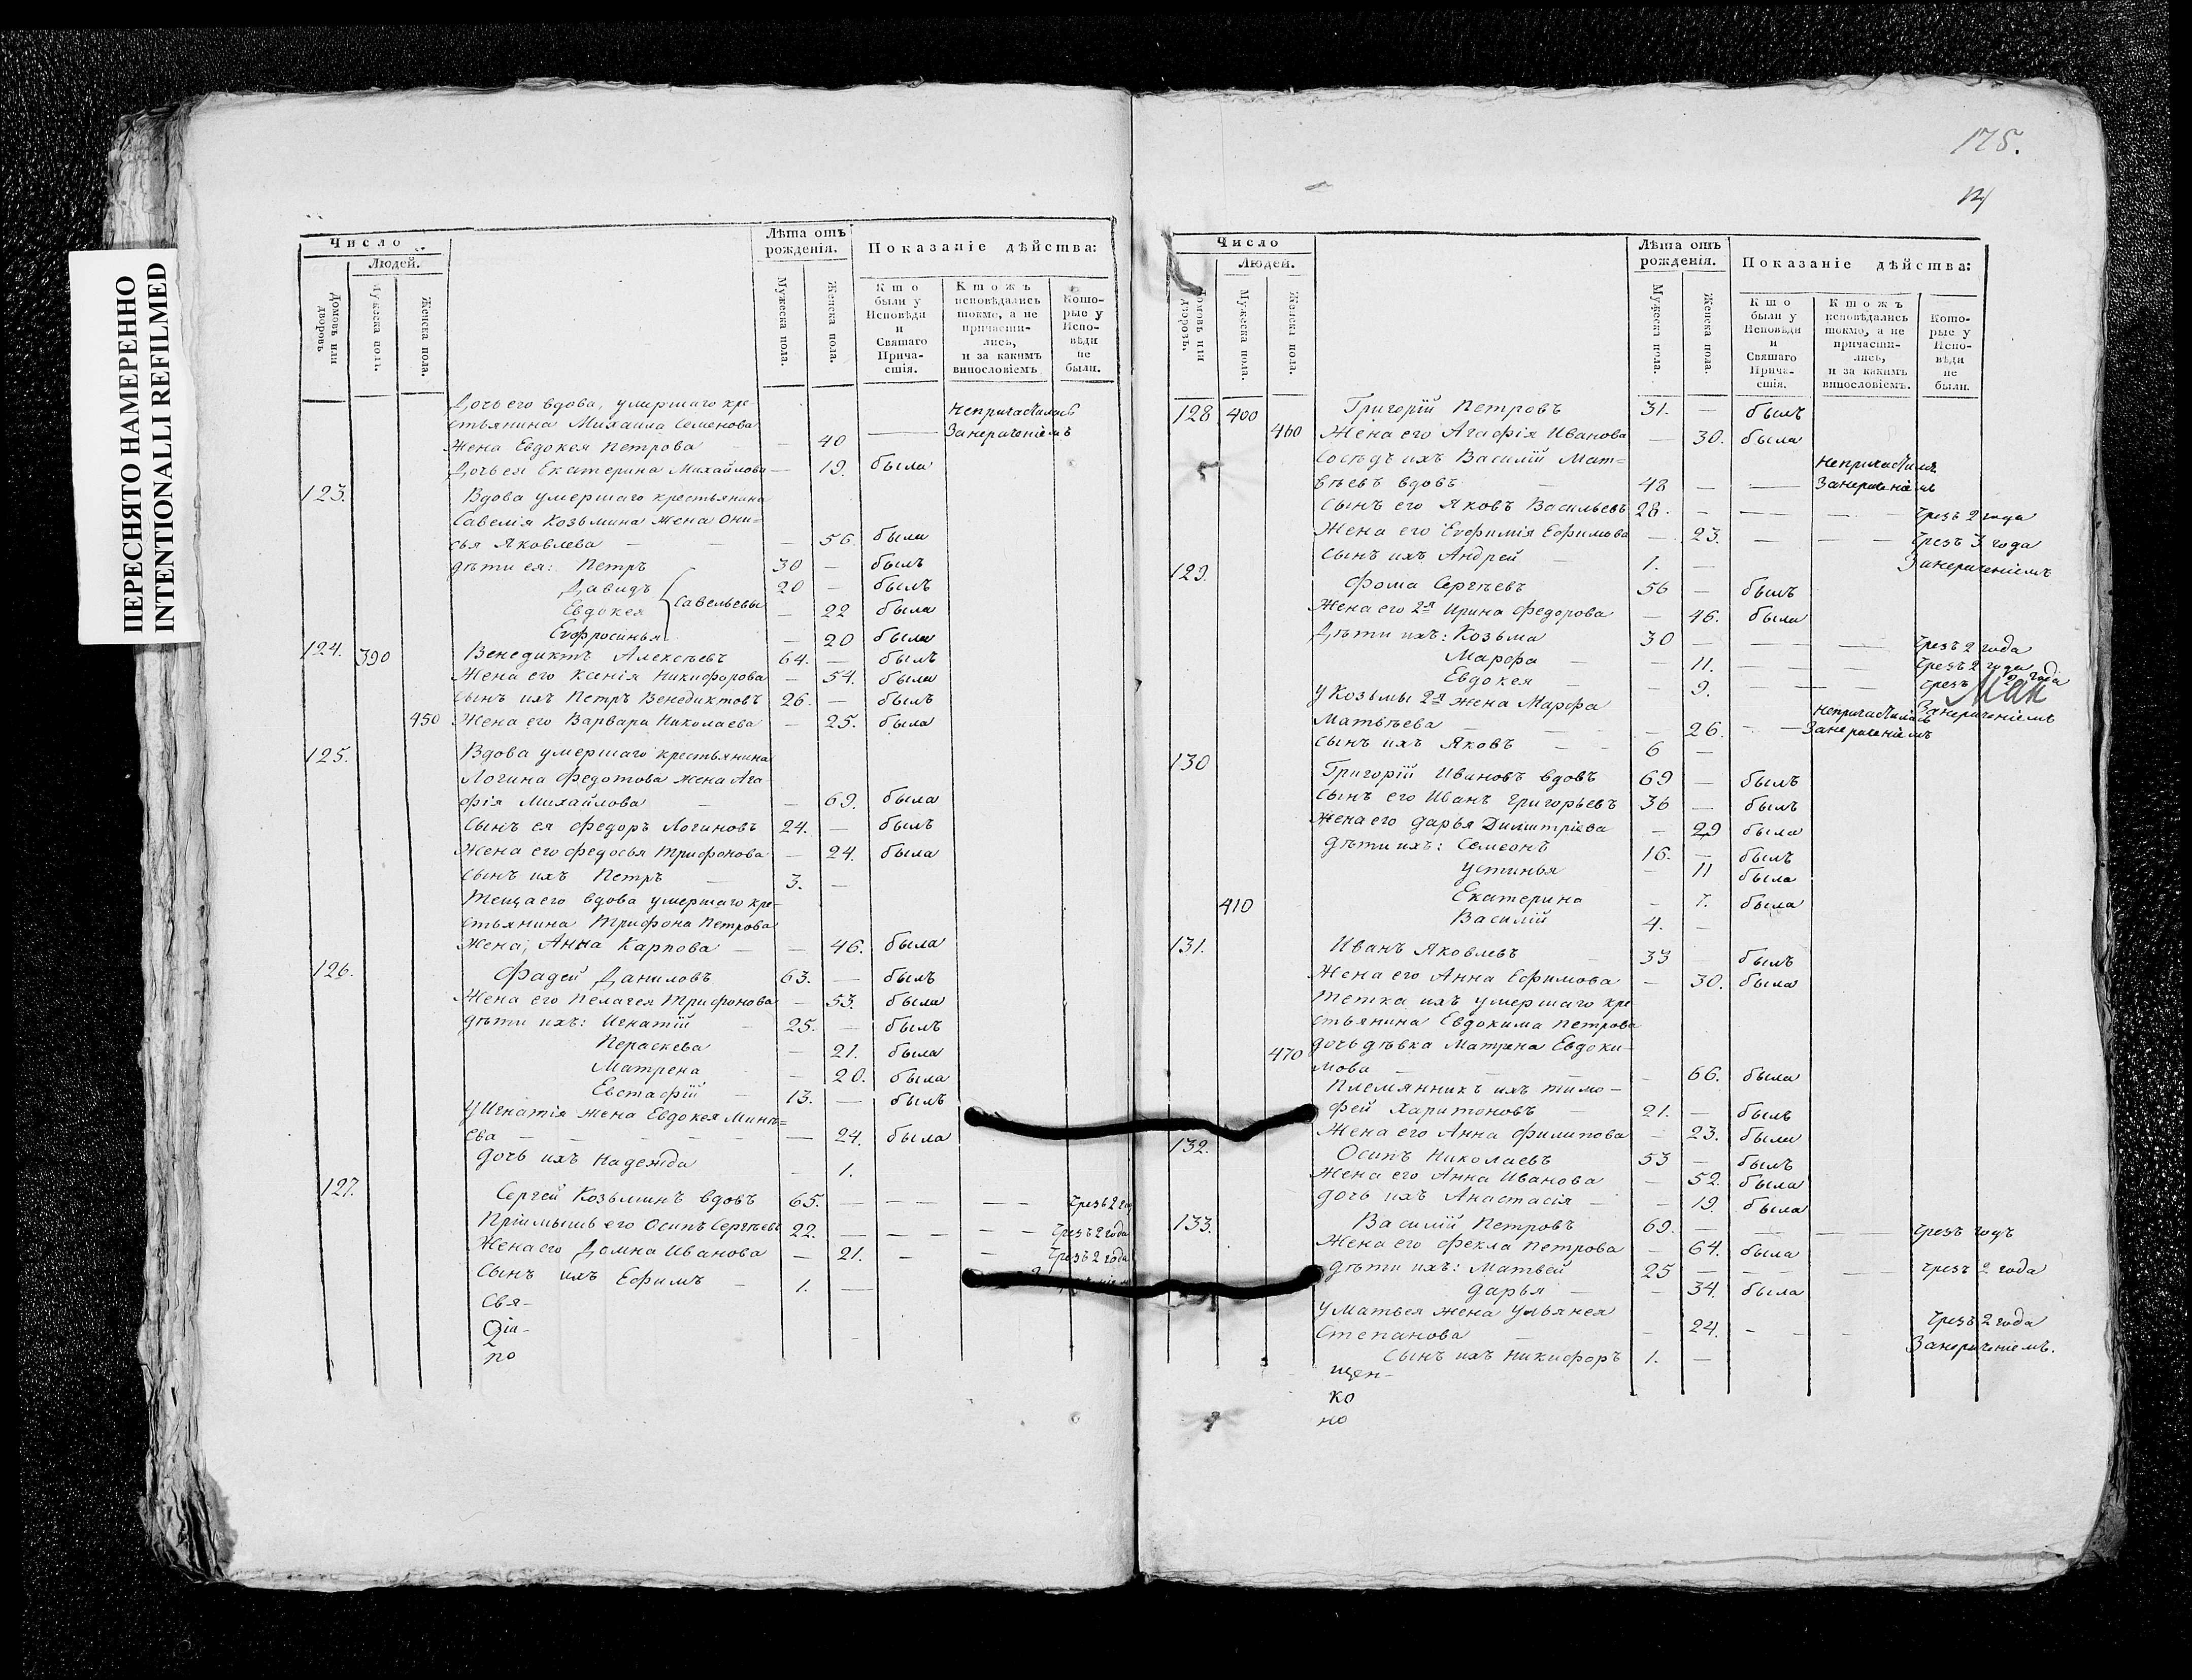 ПЕРЕСНЯТО НАМЕРЕННО
INTENTIONALLI REFILMED
Число
Людей.
Домовъ или дворовъ
Мужеска пола.
Женска пола.
Лѣта отъ рожденія.
Мужеска пола.
Женска пола.
Показаніе дѣйства:
Кто были у Исповѣди и Святаго Прича-стія.
Ктожъ исповѣдались токмо, а не причасти-лись, и за какимъ винословіемъ
Кото-рые у Испо-вѣди не были.
Дочь его вдова, умершаго кре- непричастилась
стьянина Михаила Семенова
жена Евдокея Петрова — 40 — Занерачениемъ
Дочь ея Екатерина Михайлова — 19. была
123. Вдова умершаго крестьянина
Савелія Козьмина жена Они=
сья Яковлева — — — 56. была
дѣти ея: Петръ 30 — былъ
Давидъ 20 — былъ
Евдокея Савельевы — 22 была
Евфросинья — 20 была
124. 390 Венедиктъ Алексѣевъ 64. — былъ
Жена его Ксенія Никифорова — 54. была
Сынъ ихъ Петръ Венедиктовъ 26. — былъ
450 Жена его Варвара Николаева — 25. была
125. Вдова умершаго крестьянина
Логина Федотова жена Ага
фія Михайлова — — 69. была
Сынъ ея Федоръ Логиновъ 24. — былъ
Жена его Федосья Трифонова — 24. была
Сынъ ихъ Петръ — 3. —
Теща его вдова умершаго кре-
стьянина Трифона Петрова
жена, Анна Карпова — — 46. была
126. Фадей Даниловъ 63. — былъ
Жена его Пелагея Трифонова — 53. была
дѣти ихъ: Игнатій — 25. — былъ
Пераскева — 21. была
Матрена — 20. была
Евстафій — 13. — былъ
У Игнатія жена Евдокея Минѣ=
ева — — — — — — 24. была
Дочь ихъ Надежда — 1.
127. Сергей Козьминъ вдовъ 65. — — — — Чрезъ 2 год
Пріимышь его Осипъ Сергѣевъ 22. — — — — — Чрезъ 2 года
Жена его Домна Иванова — 21. — — Чрезъ 2 года
Сынъ ихъ Ефимъ — 1. —
Свя-
Діа-
по
175.
Число
Людей.
Домовъ или дворовъ.
Мужеска пола.
Женска пола.
Лѣта отъ рожденія.
Мужеска пола.
Женска пола.
Показаніе дѣйства:
Кто были у Исповѣди и Святаго Прича-стія.
Ктожъ исповѣдались токмо, а не причасти-лись, и за какимъ винословіемъ.
Кото-рые у Испо-вѣди не были.
128 400 Григорій Петровъ 31. — былъ
460 Жена его Агафія Иванова — 30. была
Сосѣдъ ихъ Василій Мат= непричастилъ
вѣевъ вдовъ — 48 — — Занерачениемъ
Сынъ его Яковъ Васильевъ 28. — — — — Чрезъ 2 года
Жена его Евфимія Ефимова — 23. — — — Чрезъ 3 года
Сынъ ихъ Андрей — 1. — Занерачениемъ
129. Фома Сергѣевъ 56 — былъ
Жена его 2я Ирина Федорова — 46. была
Дѣти ихъ: Козьма 30 — — — Чрезъ 2 года
Марфа — — 11. — — — Чрезъ 2 года
Евдокея — — 9. — — — Чрезъ 2 года
У Козьмы 2я жена Марфа Занерачениемъ
Матвѣева — — — 26. — — непричастилась Занерачениемъ
Сынъ ихъ Яковъ — — 6 —
130 Григорій Ивановъ вдовъ 69 — былъ
Сынъ его Иванъ Григорьевъ 36 — былъ
Жена его Дарья Димитріева — 29 была
Дѣти ихъ: Семеонъ 16. — былъ
Устинья — 11 была
410 Екатерина — 7. была
Василій 4. —
131. Иванъ Яковлевъ 33 — былъ
Жена его Анна Ефимова — 30. была
Тетка ихъ умершаго кре
стьянина Евдокима Петрова
470 дочь дѣвка Матрена Евдоки-
мова — — — — 66. была
Племянникъ ихъ Тимо-
фей Харитоновъ — 21. — былъ
Жена его Анна Филипова — 23. была
132. Осипъ Николаевъ 53 — былъ
Жена его Анна Иванова — 52. была
Дочь ихъ Анастасія — — 19. была
133. Василій Петровъ 69. — — — Чрезъ годъ
Жена его Фекла Петрова — 64. была
Дѣти ихъ: Матвей 25 — — — Чрезъ 2 года
Дарья — — 34. была
У Матвея жена Ульянея
Степанова — — 24. — — — Чрезъ 2 года
Сынъ ихъ Никифоръ 1. — Занерачениемъ.
щен-
ко
но